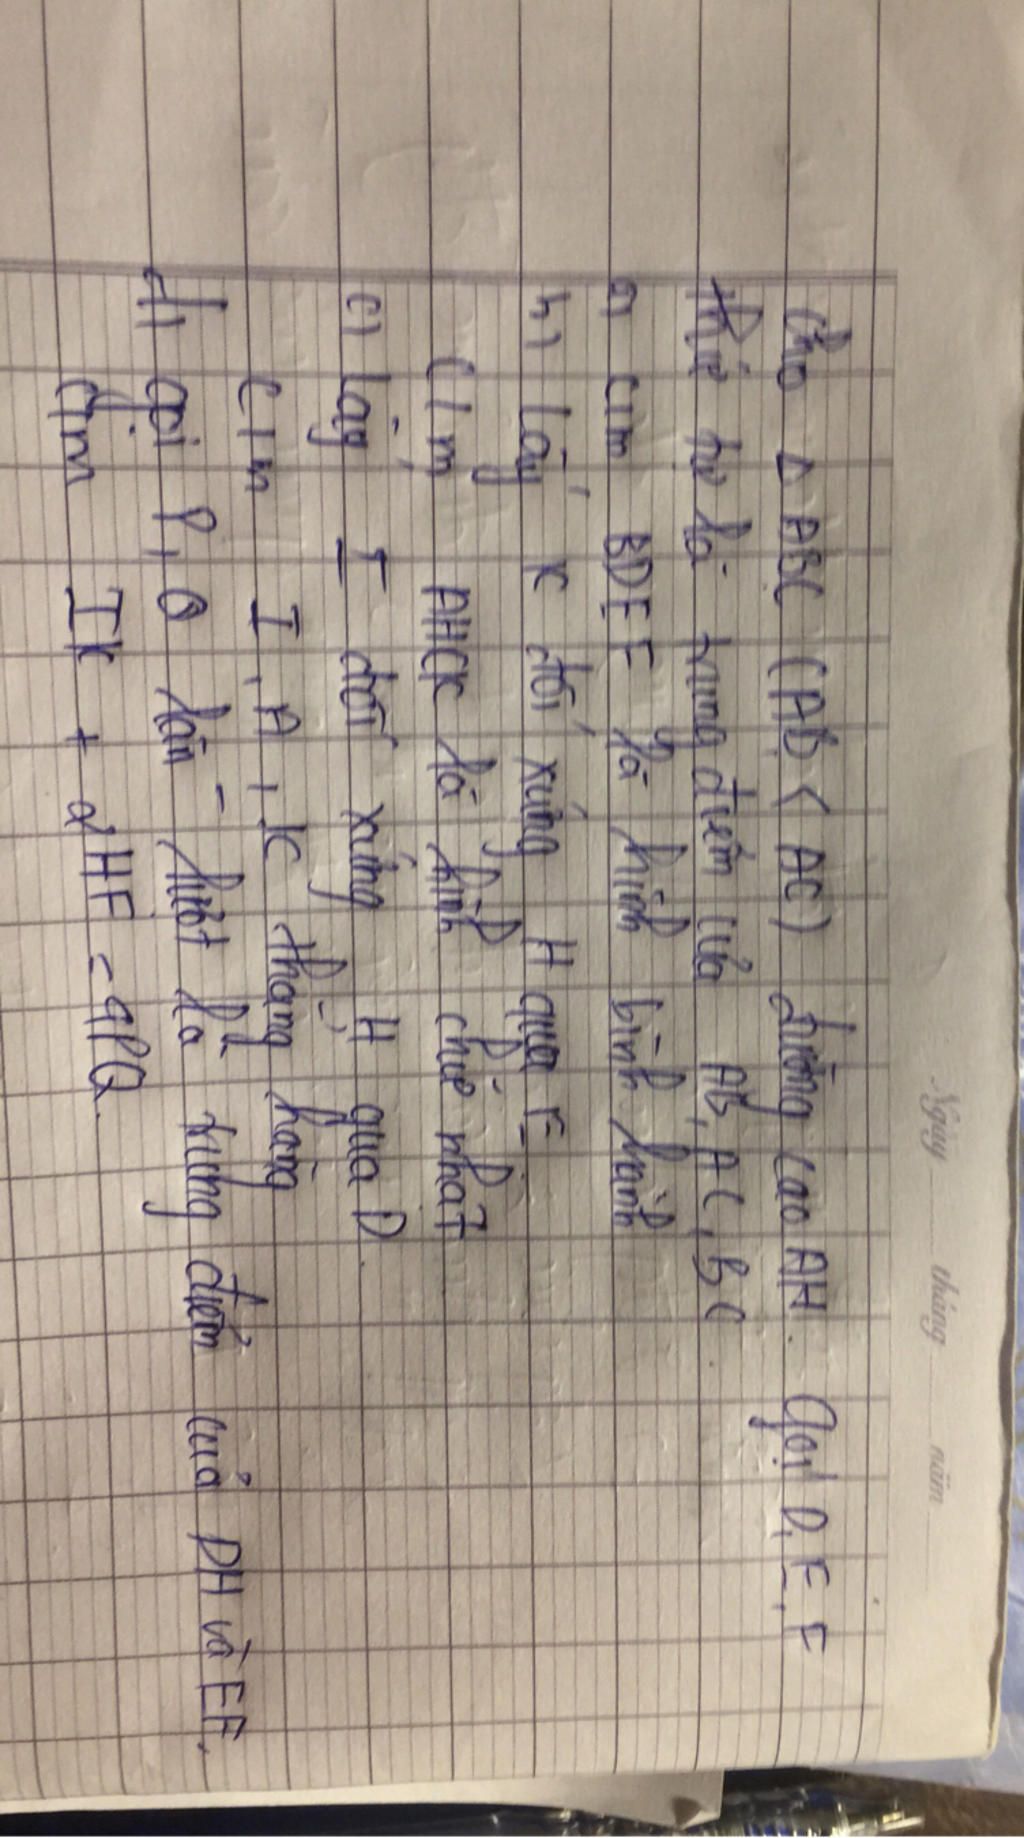 Ngày tháng năm
Cho Δ ABC (AB < AC) đường cao AH. Gọi D, E, F
thứ tự là trung điểm của AB, AC, BC.
a, cm BDEF là hình bình hành
b, Lấy K đối xứng H qua E
C/m AHCK là hình chữ nhật
c, Lấy I đối xứng H qua D.
C/m I, A, K thẳng hàng
d, Gọi P, Q lần lượt là trung điểm của DH và EF.
C/m IK + 2HF = 4PQ.